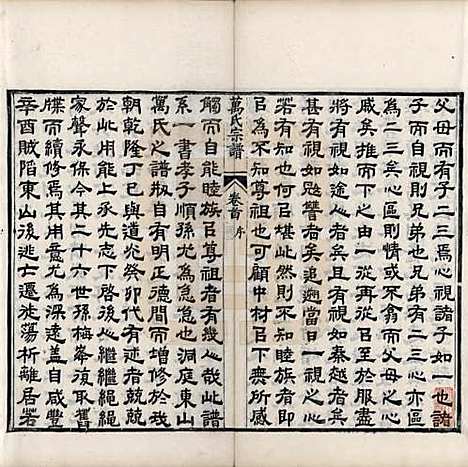 父母而有子二三焉心視諸子如一也諸
子而自視則兄弟也兄弟有二三心亦區
為二三矣心區則情或不盡同父母之心
戚矣推而下之由小功大功以至於服盡
將有視如途人者矣且有視如秦越者矣
甚有視如尅讐者矣追遡當日一視之心
若有知也何㠯堪此然則不知睦族者即
㠯為不知尊祖也可顧中材㠯下無所感
萬氏宗譜
卷首
序
觸而自能睦族㠯尊祖者有幾心哉此譜
系一書孝子順孫尤為急急也洞庭東山
萬氏之譜刱自有明正德間而增修於我
朝乾隆丁巳與道光癸卯代有述者兢兢
於此用能上承先志下啓後心繼繼繩繩
家聲永保今其二十六世孫梅峯復取舊
牒而續修焉其用意尤為深遠蓋自咸豐
辛酉賊陷東山後逃亡遷徙蕩析離居若